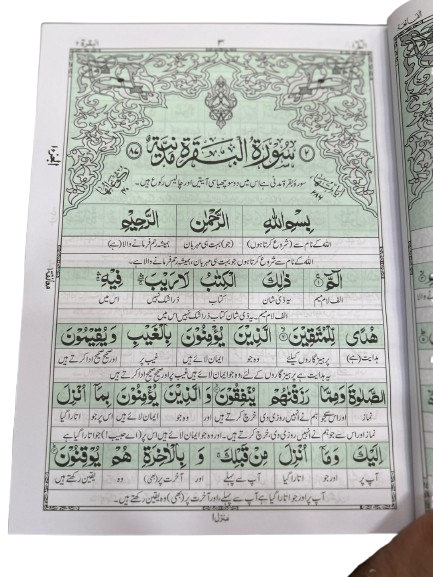 البقرة ٢
٣
الٓمّٓ ١
سُوْرَةُ الْبَقَرَةِ مَدَنِيَّةٌ
سورۂ بقرۃ مدنی ہے اس میں دو سو چھیاسی آیتیں اور چالیس رکوع ہیں۔
بِسْمِ اللّٰهِ الرَّحْمٰنِ الرَّحِيْمِ
اللہ کے نام سے (شروع کرتا ہوں) (جو) بہت ہی مہربان ہمیشہ رحم فرمانے والا (ہے)
اللہ کے نام سے شروع کرتا ہوں جو بہت ہی مہربان ہمیشہ رحم فرمانے والا ہے۔
الٓمّٓ ذٰلِكَ الْكِتٰبُ لَا رَيْبَ فِيْهِ
الف لام میم یہ ذی شان کتاب ذرا شک نہیں اس میں
الف لام میم۔ یہ ذی شان کتاب ذرا شک نہیں اس میں۔
هُدًى لِّلْمُتَّقِيْنَ الَّذِيْنَ يُؤْمِنُوْنَ بِالْغَيْبِ وَيُقِيْمُوْنَ
ہدایت (ہے) پرہیزگاروں کیلئے وہ جو ایمان لائے ہیں غیب پر اور صحیح صحیح ادا کرتے ہیں
یہ ہدایت ہے پرہیزگاروں کے لئے وہ جو ایمان لائے ہیں غیب پر اور صحیح صحیح ادا کرتے ہیں
الصَّلٰوةَ وَمِمَّا رَزَقْنٰهُمْ يُنْفِقُوْنَ وَالَّذِيْنَ يُؤْمِنُوْنَ بِمَآ اُنْزِلَ
نماز اور اس سے جو ہم نے انہیں روزی دی خرچ کرتے ہیں اور وہ جو ایمان لائے ہیں اس پر جو اتارا گیا
نماز اور اس سے جو ہم نے انہیں روزی دی خرچ کرتے ہیں۔ اور وہ جو ایمان لائے ہیں اس پر (اے حبیب!) جو اتارا گیا ہے
اِلَيْكَ وَمَآ اُنْزِلَ مِنْ قَبْلِكَ وَ بِالْاٰخِرَةِ هُمْ يُوْقِنُوْنَ
آپ پر اور جو اتارا گیا آپ سے پہلے اور آخرت پر (بھی) وہ یقین رکھتے ہیں
آپ پر اور جو اتارا گیا ہے آپ سے پہلے، اور آخرت پر (بھی) وہ یقین رکھتے ہیں۔
منزل ١